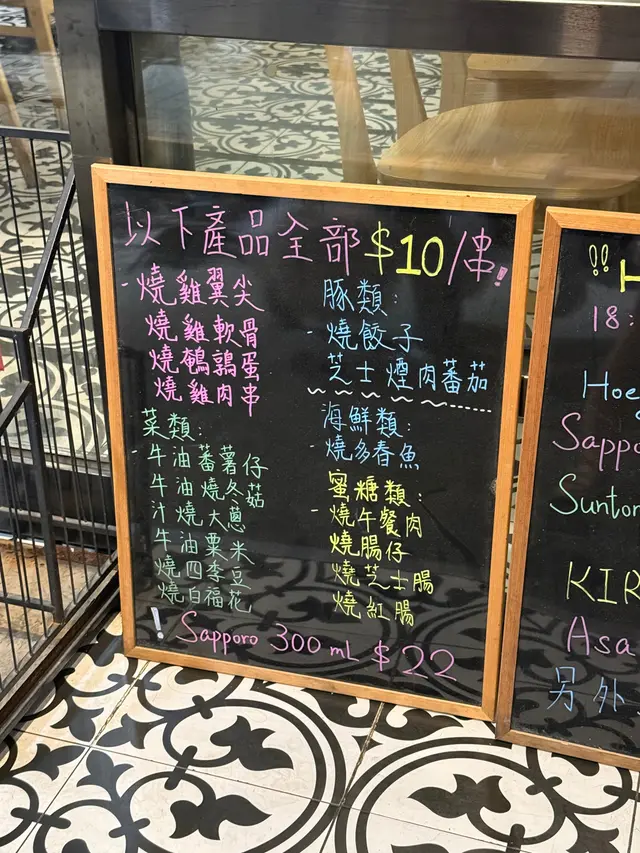 以下產品全部$10/串!
- 燒雞翼尖
燒雞軟骨
燒鵪鶉蛋
燒雞肉串
菜類:
- 牛油蕃薯仔
牛油燒冬菇
汁燒大蔥
牛油粟米
燒四季豆
燒白福花
豚類:
- 燒餃子
芝士煙肉蕃茄
海鮮類:
- 燒多春魚
蜜糖類:
- 燒午餐肉
燒腸仔
燒芝士腸
燒紅腸
! Sapporo 300mL $22
!! H
18:
Hoe
Sappo
Suntor
KIR
Asa
另外